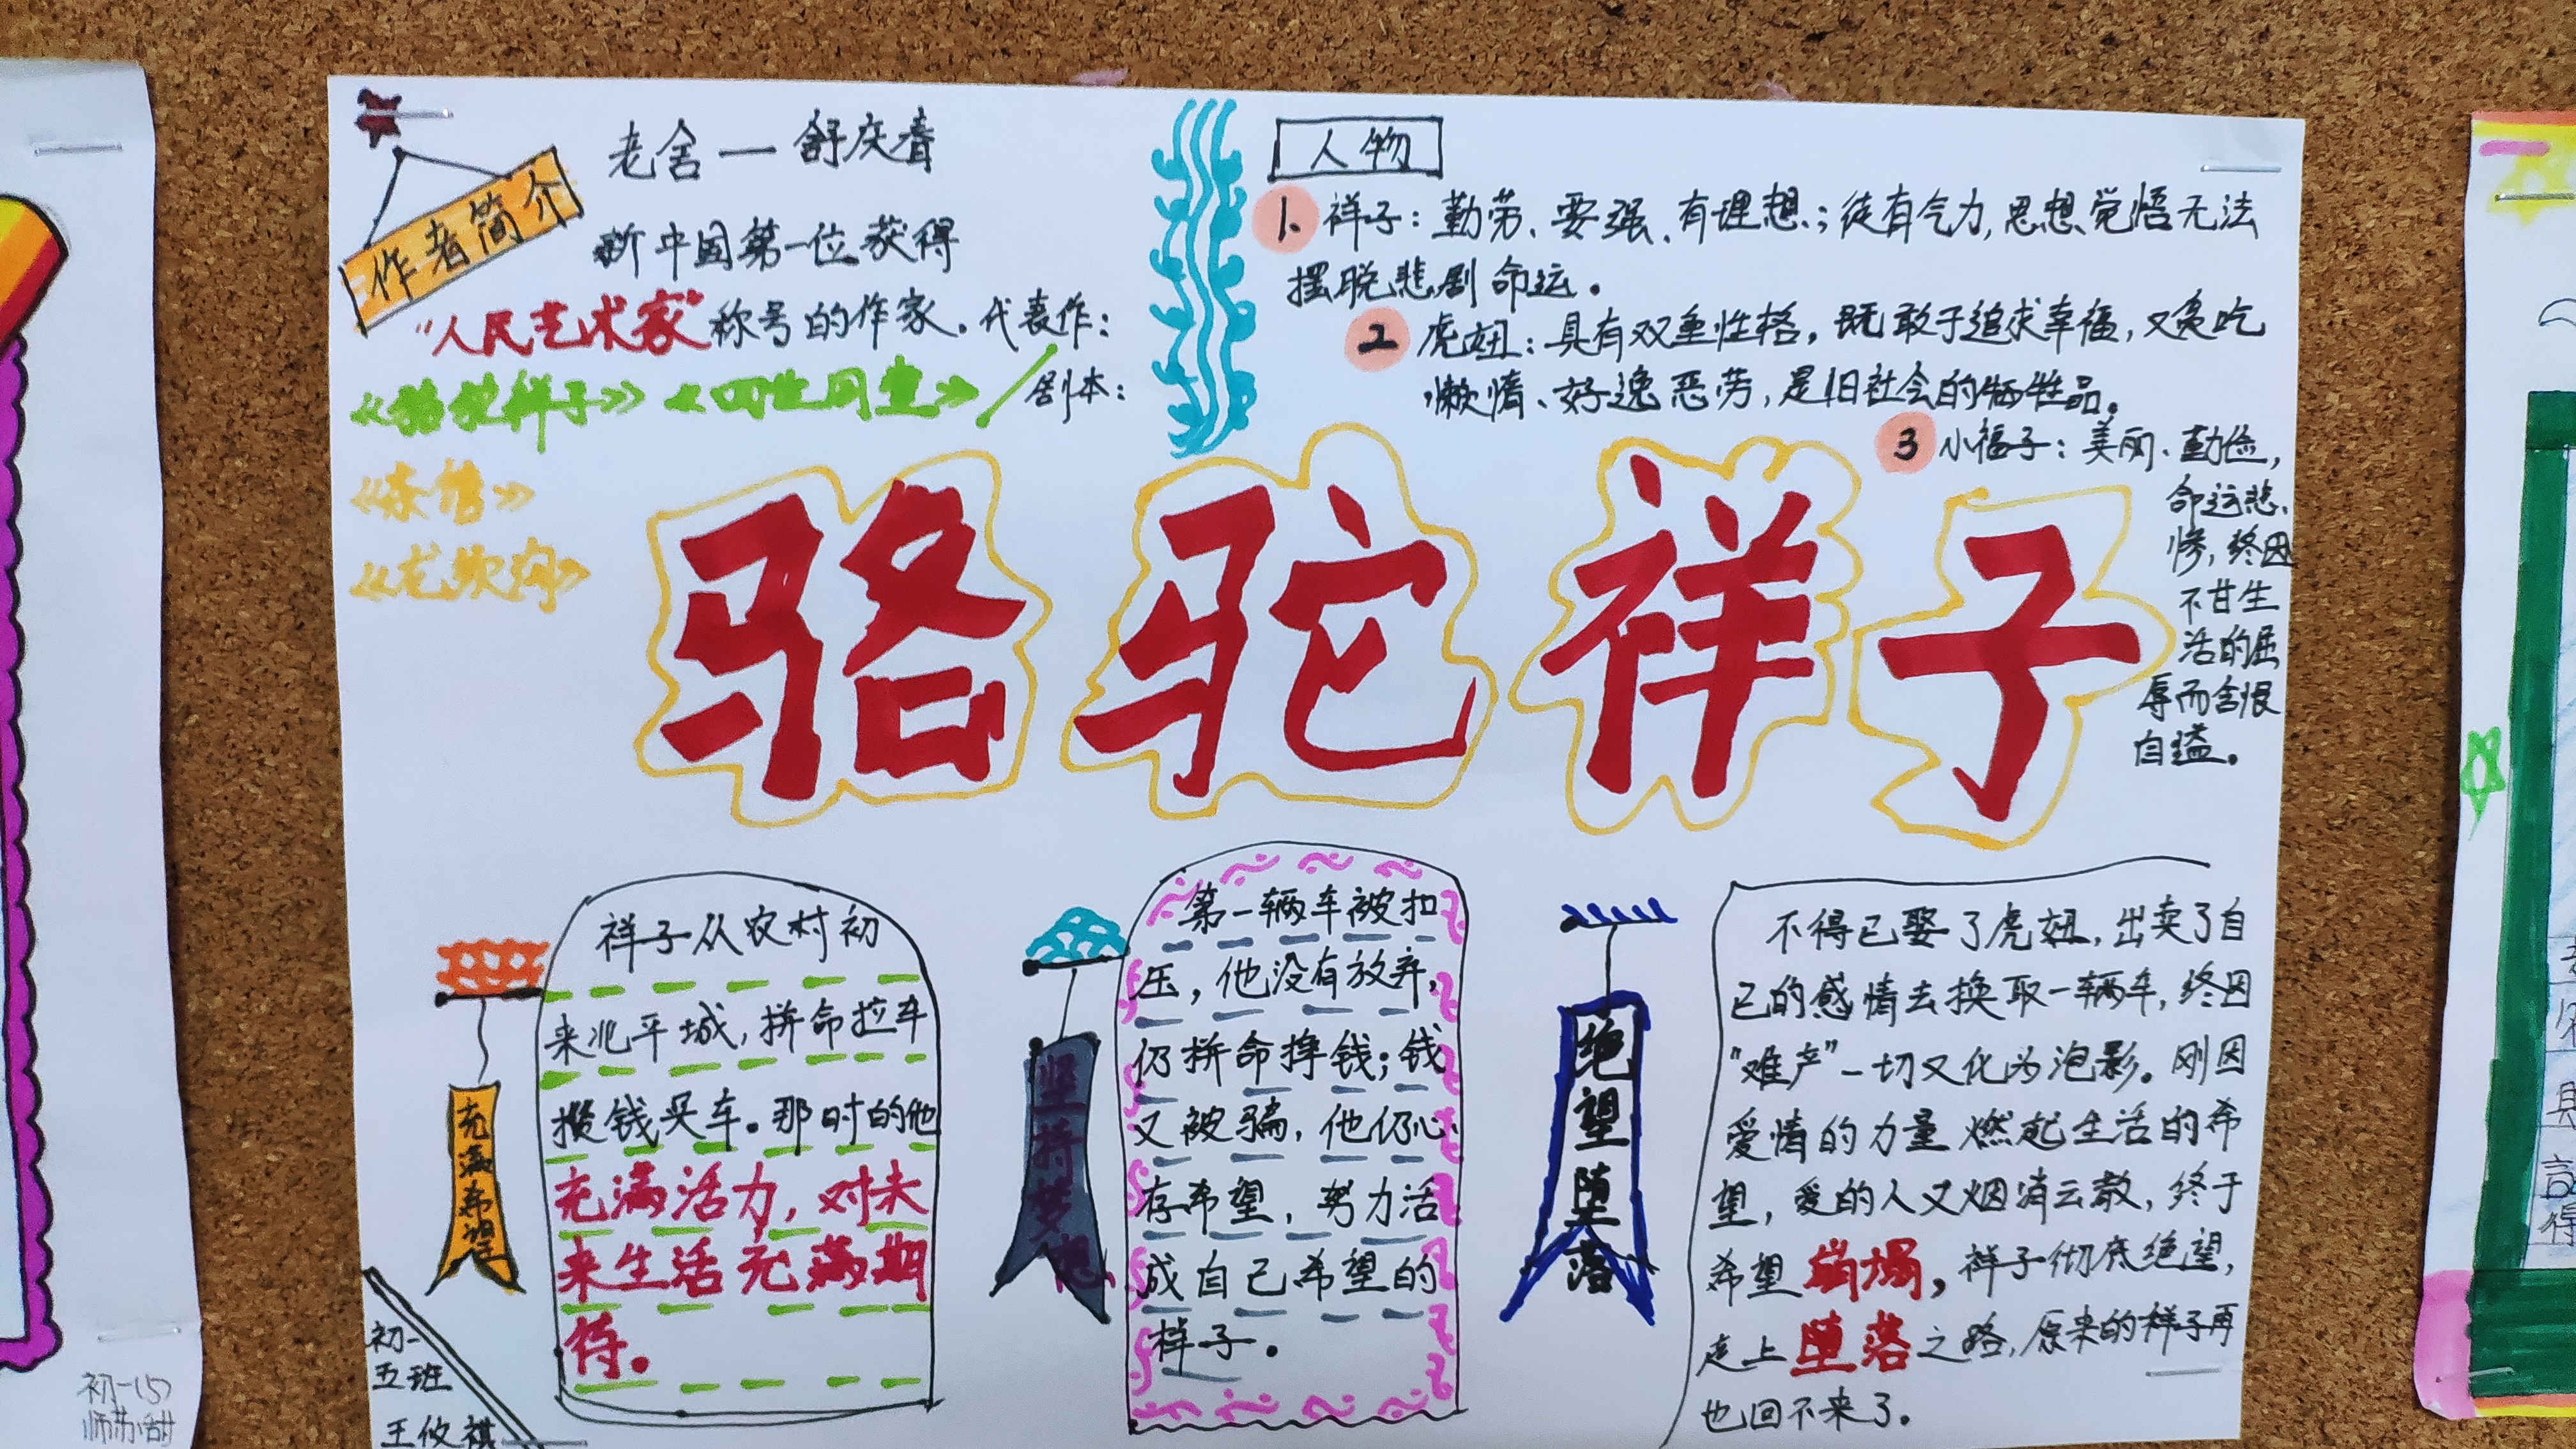 作者简介
老舍一舒庆春
新中国第一位获得
“人民艺术家”称号的作家。代表作:
《骆驼祥子》《四世同堂》/剧本:
《茶馆》
《龙须沟》
人物
1. 祥子:勤劳、要强、有理想;徒有气力,思想觉悟无法
摆脱悲剧命运。
2 虎妞:具有双重性格,既敢于追求幸福,又贪吃
懒惰、好逸恶劳,是旧社会的牺牲品。
3 小福子:美丽、勤俭,
命运悲
惨,终因
不甘生
活的屈
辱而含恨
自缢。
骆驼祥子
充满希望
祥子从农村初
来北平城,拼命拉车
攒钱买车。那时的他
充满活力,对未
来生活充满期
待。
坚持梦想
第一辆车被扣
压,他没有放弃,
仍拼命挣钱;钱
又被骗,他仍心
存希望,努力活
成自己希望的
样子。
绝望堕落
不得已娶了虎妞,出卖了自
己的感情去换取一辆车,终因
“难产”一切又化为泡影。刚因
爱情的力量燃起生活的希
望,爱的人又烟消云散,终于
希望崩塌,祥子彻底绝望,
走上堕落之路,原来的祥子再
也回不来了。
初一
五班
王攸祺
初一(5)
师苏甜